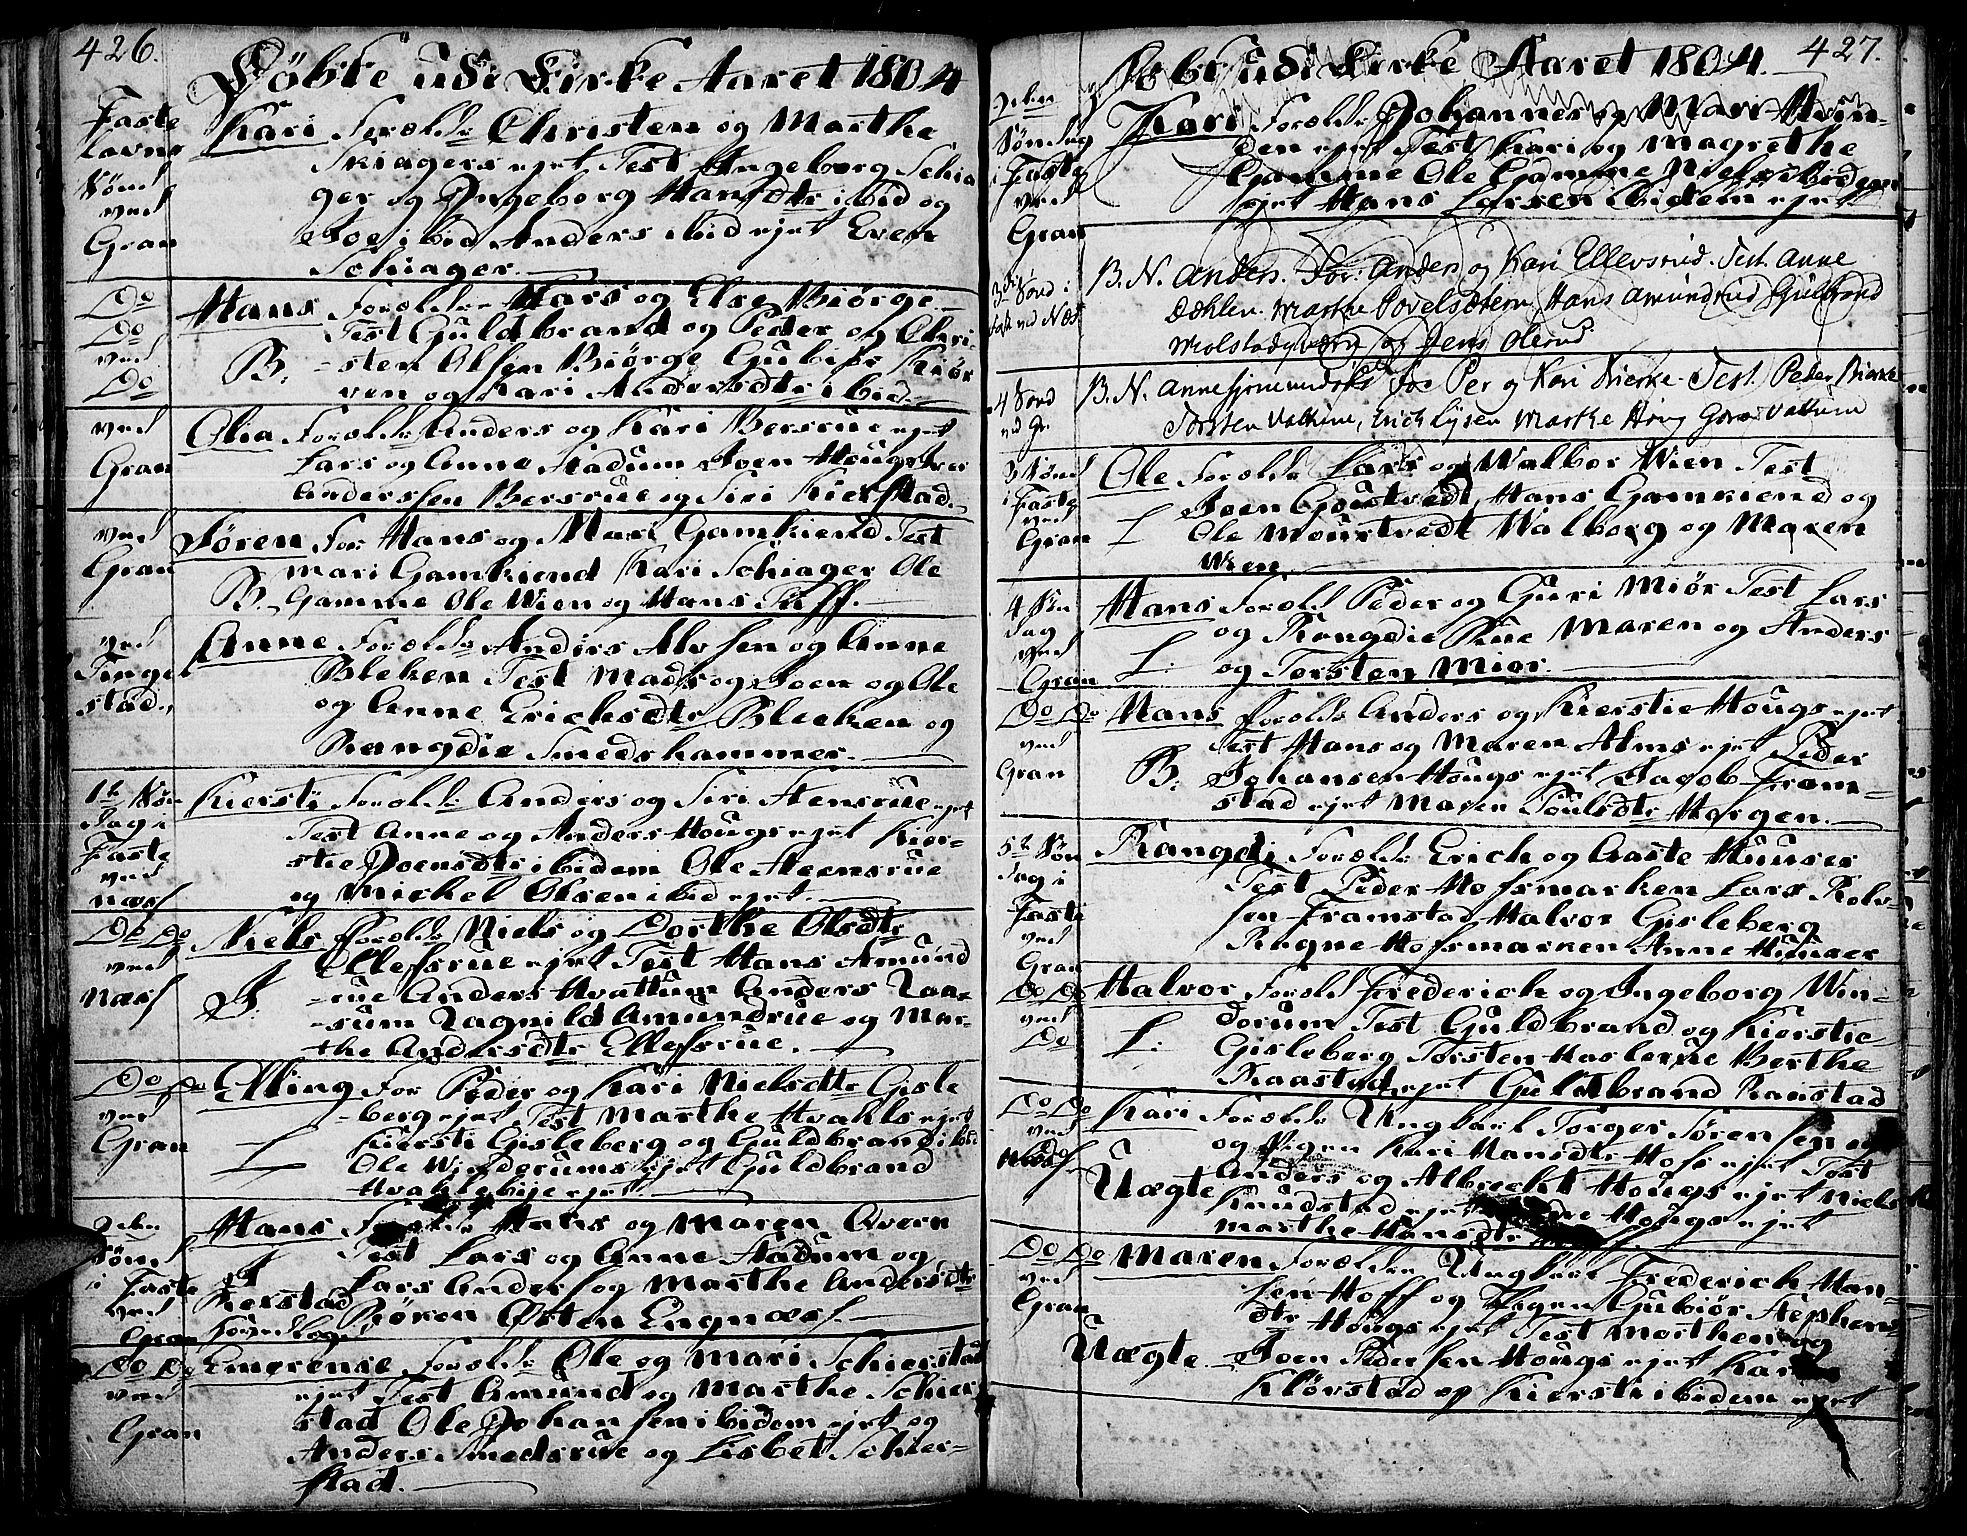 426.
Döbte udi Kirke Aaret 1804
Faste
lavns
Sönd
ved
Gran
Kari Foræld. Christen og Marthe
Skiagers ejet Test Ingeborg Schia
ger og Ingeborg Hansdtr ibid og
Joe ibid Anders ibid ejet Even
Schiager.
Do
Do
ved
Do
Hans Foræld. Hars og Else Biörge
Test Guldbrand og Peder og Chri-
B. sten Olsen Biörge Gubiör Kiör
ven og Kari Andersdtr ibid.
ved
Gran
Olia Foræld. Anders og Kari Bersrue ejet
Lars og Anne Stadum Joen Hougs Iver
Anderssen Bersrue og Siri Kierstad.
ved
Gran
Sören For. Hans og Mari Gamkiend Test
Mari Gamkiend Kari Schiager Ole
B. Gamme Ole Wien og Hans Tuff.
ved
Tinge
stad.
Anne Foræld. Anders Alvsen og Anne
Bleken Test Mads og Joen og Ole
og Anne Erichsdtr Bleken og
Rangdie Smedshammer.
1te Sön
dag i
Faste
ved
næss
Kiersti Foræld. Anders og Siri Stensrue ejet
Test Anne og Anders Hougs ejet Kier-
stie Joensdtr ibidem Ole Steensrue
og Michel Olsen ibid ejet.
Do Do
ved
Næss
Niels Foræld. Niels og Dorthe Olsdtr
Ellefsrue ejet Test Hans Amund
J. rue Anders Hvattum Anders Raa-
sum Ragnild Amundrue og Mar-
the Andersdtr Ellefsrue.
Do Do
ved
Gran
Elling For. Peder og Kari Nielsdtr Gisle
berg ejet Test Marthe Hvahls ejet
L Kiersti Gisleberg og Guldbrand ibid
Ole Winderums ejet Guldbrand
Hvahlsbÿe ejet
2den
Sönd
i Faste
ved
Gran
Hans Foræld. Hans og Maren Qvern
Test Lars og Anne Stadum og
Kierstad Lars Anders og Marthe Andersdtr
Sören Östen Engnæss.
Do Do
ved
Gran
Emerense Foræld. Ole og Mari Schierstad
ejet Test Amund og Marthe Schier
stad Ole Johansen ibidem ejet og
Anders Smedsrue og Lisbet Schier-
stad.
427.
Döbt udi Kirke Aaret 1804.
2den
Söndag
i Faste
ved
Gran
Kari Foræld. Johannes og Mari Hvin-
den ejet Test Kari og Magrethe
Gamme Ole Gamme Niels ibidem
ejet Hans Larsen ibidem ejet
3die Sönd i
fast ved Næs
B. N. Anders. For: Anders og Kari Ellevsrud. Test Anne
Dæhlen. Marthe Povelsdtern, Hans Amundrud Gulbrand
Molstad og Jens Olerud
4 Sønd
ved Gr.
B. N. Anne For Per og Kari Bierke Test. Peder Bierke
Torsten Vattum, Erich Lysen Marthe Houg Vattum
3 Sönd
i Faste
ved
Gran
Ole Foræld. Lars og Walbor Wien Test
Joen Goustvedt Hans Gamkiend og
L Ole Moustvedt Walborg og Maren
Wien.
4 Sön
dag
ved
Gran
Hans Foræld. Peder og Guri Miör Test Lars
og Rongdie Rue Maren og Anders
L. og Torsten Mior.
Do Do
ved
Gran
Hans Foræld. Anders og Kierstie Hougs ejet
Test Hans og Maren Alms ejet Peder
B. Johansen Hougs ejet Jacob Fram-
stad ejet Maren Poulsdtr Horgen.
5te Sön
dag i
Faste
ved
Gran
Rangdi Foræld. Erich og Aaste Huuser
Test Peder Hofsmarken Lars Rolv-
sen Framstad Halvor Gisleberg
Ragne Hofsmarken Anne Huuser
Do Do
ved
Do
Halvor Foræld. Frederich og Ingeborg Win-
dorum Test Guldbrand og Kierstie
L: Gisleberg Torsten Haslerue Berthe
Raastad ejet Guldbrand Ranstad
Do Do
ved
Kari Foræld. Ungkarl Torger Sörensen og
og Pigen Kari Hansdtr Hofs ejet Test
Uægte Anders og Albrecht Hougs ejet Niels
Knudstad ejet Hougs ejet
Marthe Hansdtr
Do Do
ved
Gran
Maren Foræld. Ungkarl Frederich Han-
sen Hoff og Pigen Gubiör Stephens-
dtr Hougs ejet Test Marthe og
Uægte Joen Pedersen Hougs ejet Kari
Klörstad og Kiersti ibidem ejet